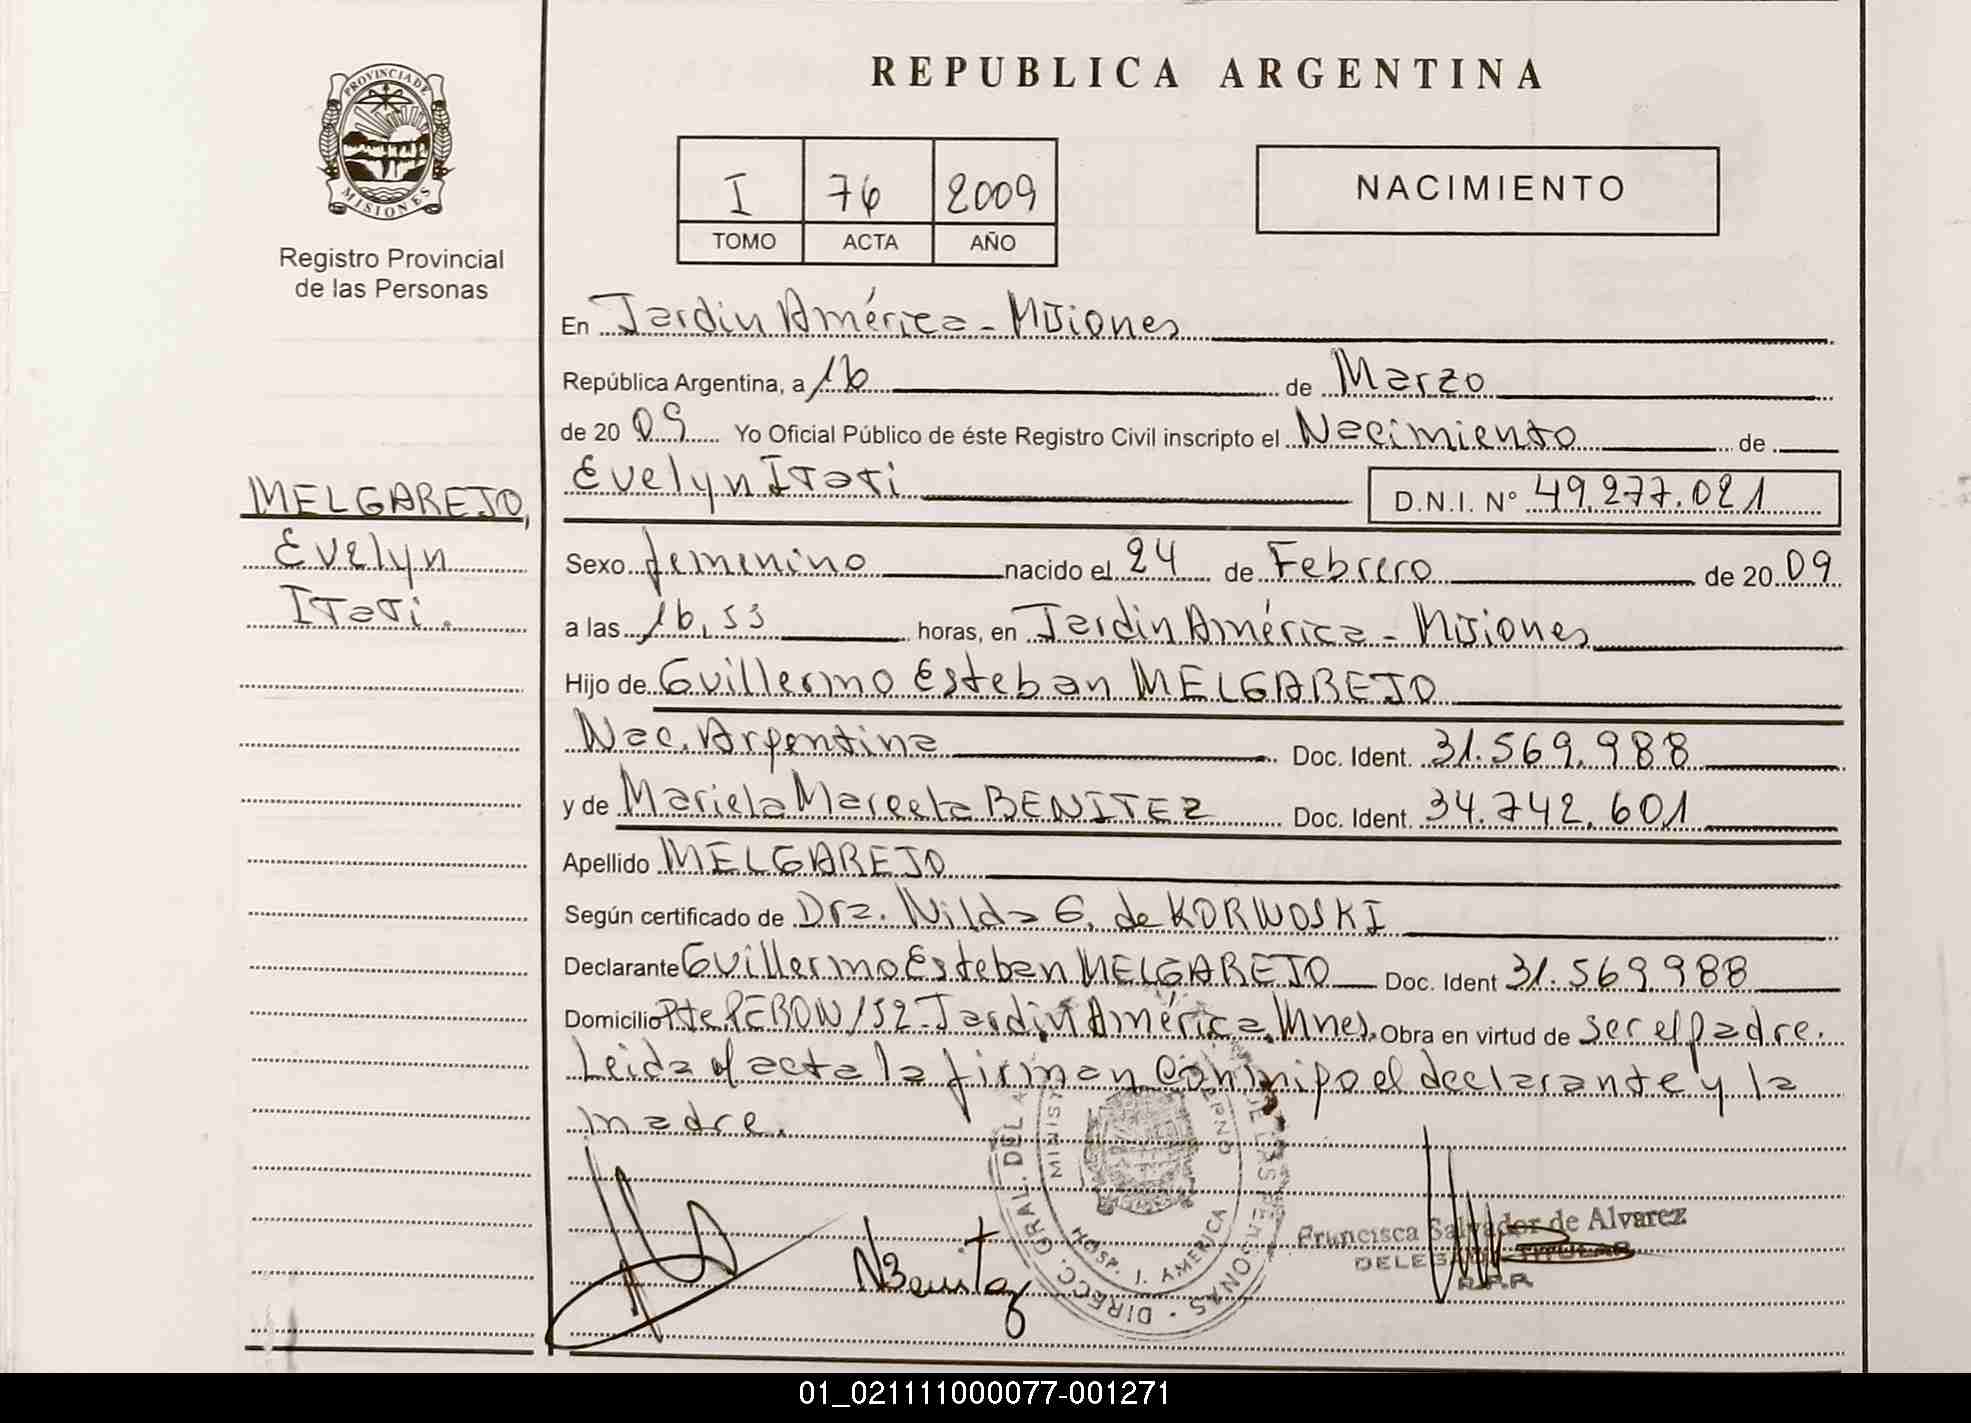 REPUBLICA ARGENTINA
PROVINCIA DE
MISIONES
Registro Provincial
de las Personas
I 76 2009
TOMO ACTA AÑO
NACIMIENTO
En Jardin América - Misiones
República Argentina, a 16 de Marzo
de 20 09 Yo Oficial Público de éste Registro Civil inscripto el Nacimiento de
Evelyn Itati D.N.I. N° 49.277.021
MELGAREJO,
Evelyn
Itati.
Sexo femenino nacido el 24 de Febrero de 20 09
a las 16,53 horas, en Jardin América - Misiones
Hijo de Guillermo Esteban MELGAREJO
Nac. Argentina Doc. Ident. 31.569.988
y de Mariela Marcela BENITEZ Doc. Ident. 34.742.601
Apellido MELGAREJO
Según certificado de Dra. Nilda G. de KORWOSKI
Declarante Guillermo Esteban MELGAREJO Doc. Ident 31.569.988
Domicilio Pte PERON 152 - Jardin América, Mnes. Obra en virtud de ser el padre.
Leida el acta la firman conmigo el declarante y la
madre.
DIRECC. GRAL. DEL DE LAS PERSONAS
HOSP. J. AMERICA
NBenitez
Francisca Salvador de Alvarez
DELEGADA TITULAR
R.P.P.
01_021111000077-001271